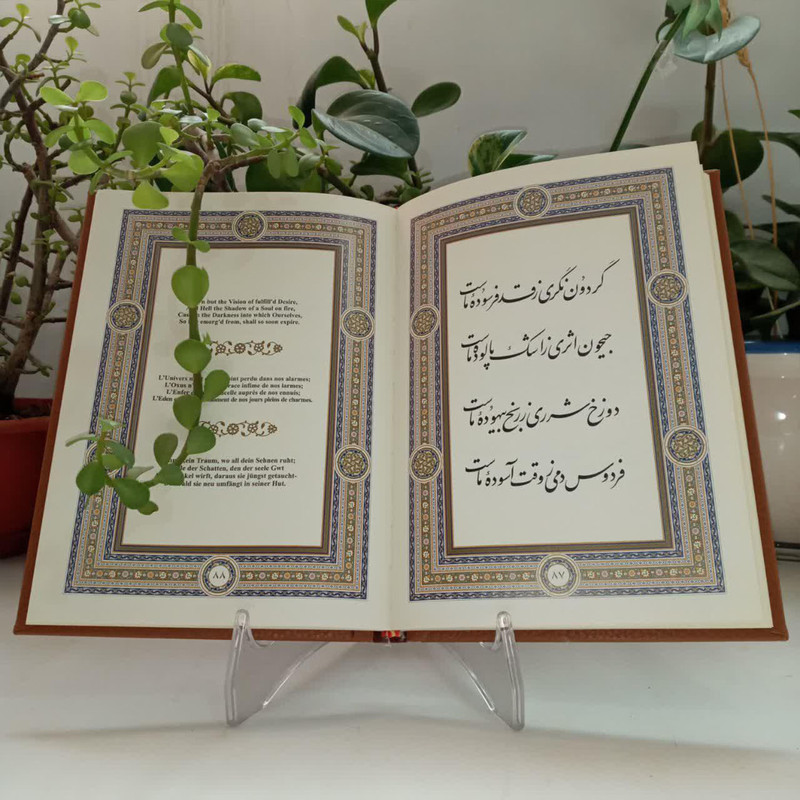 گردون نگری ز قد فرسوده ماست
جیحون اثری ز اشک پالوده ماست
دوزخ شرری ز رنج بیهوده ماست
فردوس دمی ز وقت آسوده ماست
۸۷
but the Vision of fulfill'd Desire,
Hell the Shadow of a Soul on fire,
the Darkness into which Ourselves,
So emerg'd from, shall soon expire.
L'Univers perdu dans nos alarmes;
L'Oxus infime de nos larmes;
L'Enfer auprés de nos ennuis;
L'Eden de nos jours pleins de charmes.
Traum, wo all dein Sehnen ruht;
der Schatten, den der seele Gwt
wirft, daraus sie jüngst getaucht-
sie neu umfängt in seiner Hut.
۸۸